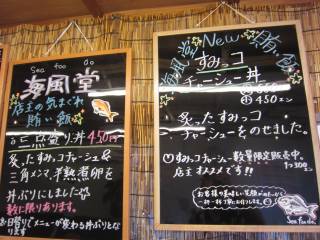 Sea foo do
海風堂
店主の気まぐれ
賄い飯
三点盛り丼 450円
炙ったすみっコチャーシュー&
三角メンマ、半熟煮卵を
丼ぶりにしました
数に限りあります。
日替りでメニューが変わる丼ぶりとなります
海風堂 New 賄飯
すみっコ
チャーシュー丼
450エン
炙ったすみっコ
チャーシューをのせました。
すみっコチャーシュー数量限定販売中。
店主オススメです!! 300エン
お客様の美味しい笑顔が
一杯一杯丁寧にお作りします。
Sea foo do